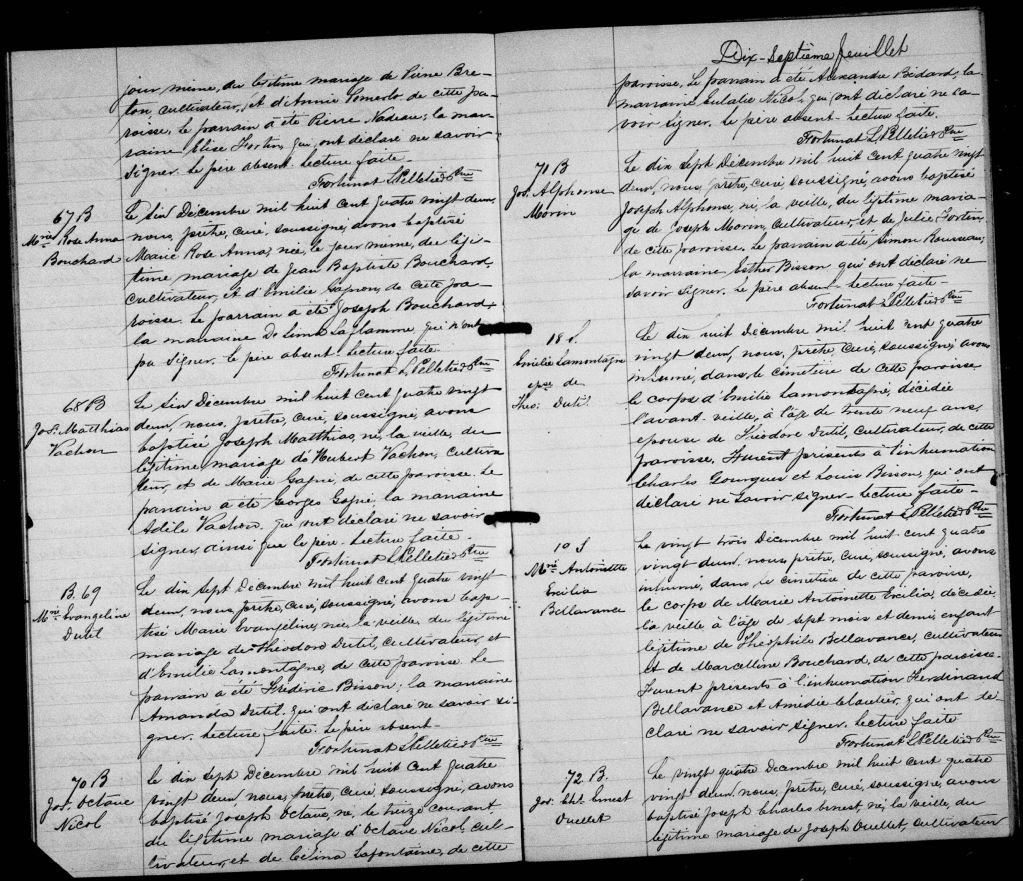 jour même, du légitime mariage de Pierre Bre-
ton, cultivateur, et d'Annie Pomerlo de cette pa-
roisse. Le parrain a été Pierre Nadeau; la mar-
raine Elise Fortin, qui ont déclaré ne savoir
signer. Le père absent. Lecture faite.
Fortunat L. Pelletier Ptre
67 B
Mrie Rose Anna
Bouchard
Le six Décembre mil huit cent quatre vingt deux,
nous, prêtre, curé, soussigné, avons baptisé
Marie Rose Anna, née, le jour même, du légi-
time mariage de Jean Baptiste Bouchard,
cultivateur, et d'Emélie Gagnon, de cette pa-
roisse. Le parrain a été Joseph Bouchard,
la marraine Delima Laflamme, qui n'ont
pu signer. Le père absent. Lecture faite.
Fortunat L. Pelletier Ptre
68 B
Jos. Matthias
Vachon
Le six Décembre mil huit cent quatre vingt
deux, nous, prêtre, curé, soussigné, avons
baptisé Joseph Matthias, né, la veille, du
légitime mariage de Hubert Vachon, cultiva-
teur, et de Marie Gagné, de cette paroisse. Le
parrain a été Georges Gagné, la marraine
Adèle Vachon, qui ont déclaré ne savoir
signer, ainsi que le père. Lecture faite.
Fortunat L. Pelletier Ptre
B. 69
Mrie Evangéline
Dutil
Le dix sept Décembre mil huit cent quatre vingt
deux, nous, prêtre, curé, soussigné, avons bap-
tisé Marie Evangéline, née, la veille, du légitime
mariage de Théodore Dutil, cultivateur, et
d'Emélie Lamontagne, de cette paroisse. Le
parrain a été Frédéric Bisson; la marraine
Amanda Dutil, qui ont déclaré ne savoir si-
gner. Lecture faite. Le père absent.
Fortunat L. Pelletier Ptre
70 B
Jos. Octave
Nicol
Le dix sept Décembre mil huit cent quatre
vingt deux, nous, prêtre, curé, soussigné, avons
baptisé Joseph Octave, né, le treize courant
du légitime mariage d'Octave Nicol, cul-
tivateur, et de Célina Lafontaine, de cette
Dix-Septième feuillet
paroisse. Le parrain a été Alexandre Bédard; la
marraine Eulalie Nicol, qui ont déclaré ne sa-
voir signer. Le père absent. Lecture faite.
Fortunat L. Pelletier Ptre
71 B
Jos. Alphonse
Morin
Le dix sept Décembre mil huit cent quatre vingt
deux, nous, prêtre, curé, soussigné, avons baptisé
Joseph Alphonse, né, la veille, du légitime maria-
ge de Joseph Morin, cultivateur, et de Julie Fortin,
de cette paroisse. Le parrain a été Simon Rousseau;
la marraine Esther Bisson qui ont déclaré ne
savoir signer. Le père absent. Lecture faite.
Fortunat L. Pelletier Ptre
18 S.
Emélie Lamontagne
épse de
Theo. Dutil
Le dix huit Décembre mil huit cent quatre
vingt deux, nous, prêtre, curé, soussigné, avons
inhumé, dans le cimetière de cette paroisse
le corps d'Emélie Lamontagne, décédée
l'avant-veille, à l'âge de trente neuf ans,
épouse de Théodore Dutil, cultivateur, de cette
paroisse. Furent présents à l'inhumation
Charles Gourgues et Louis Bisson, qui ont
déclaré ne savoir signer. Lecture faite.
Fortunat L. Pelletier Ptre
19 S
Mrie Antoinette
Ercilia
Bellavance
Le vingt trois Décembre mil huit cent quatre
vingt deux, nous, prêtre, curé, soussigné, avons
inhumé, dans le cimetière de cette paroisse,
le corps de Marie Antoinette Ercilia, décédée,
la veille à l'âge de sept mois et demi, enfant
légitime de Théophile Bellavance, cultivateur
et de Marcelline Bouchard, de cette paroisse.
Furent présents à l'inhumation Ferdinand
Bellavance et Amédée Cloutier, qui ont dé-
claré ne savoir signer. Lecture faite
Fortunat L. Pelletier Ptre
72 B.
Jos. Chs. Ernest
Ouellet
Le vingt quatre Décembre mil huit cent quatre
vingt deux, nous, prêtre, curé, soussigné, avons
baptisé Joseph Charles Ernest, né, la veille, du
légitime mariage de Joseph Ouellet, cultivateur